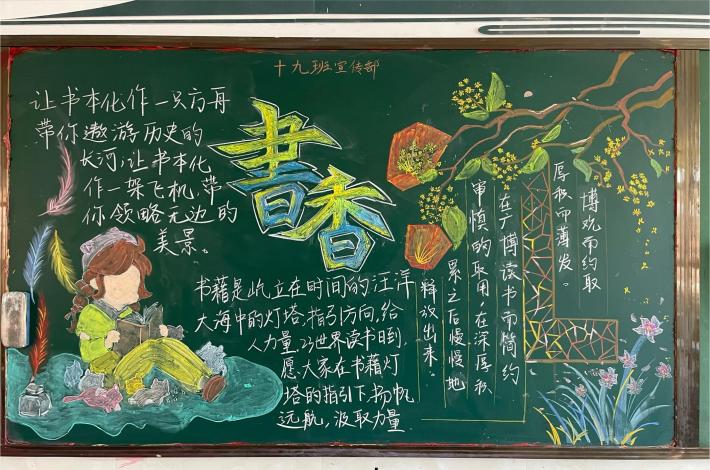 十九班宣传部
让书本化作一只方舟
带你遨游历史的
长河;让书本化
作一架飞机,带
你领略无边的
美景。
書香
书籍是屹立在时间的汪洋
大海中的灯塔,指引方向,给
人力量,23世界读书日到,
愿大家在书籍灯
塔的指引下,扬帆
远航,汲取力量
博观而约取
厚积而薄发。
在广博读书而简约
审慎的取用,在深厚积
累之后慢慢地
释放出来。